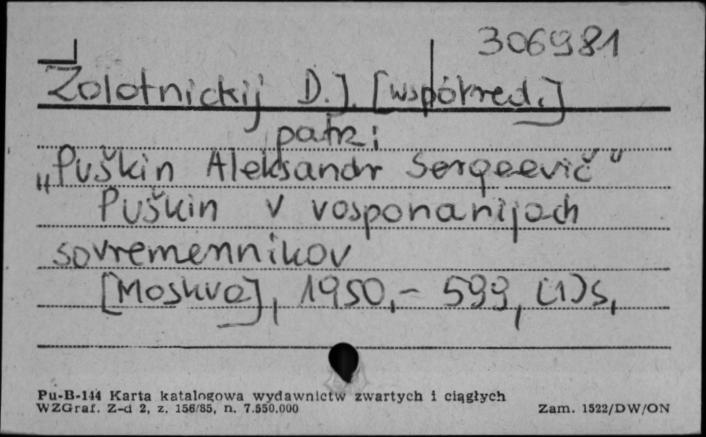 306981
Zolotnickij D.J. [współred.]
patrz:
„Puškin Aleksandr Sergeevič"
Puškin v vosponanijach
sovremennikov
[Moskva], 1950,- 599, (1)s,
Pu-B-144 Karta katalogowa wydawnictw zwartych i ciągłych
WZGraf. Z-d 2, z. 156/85, n. 7.550.000
Zam. 1522/DW/ON